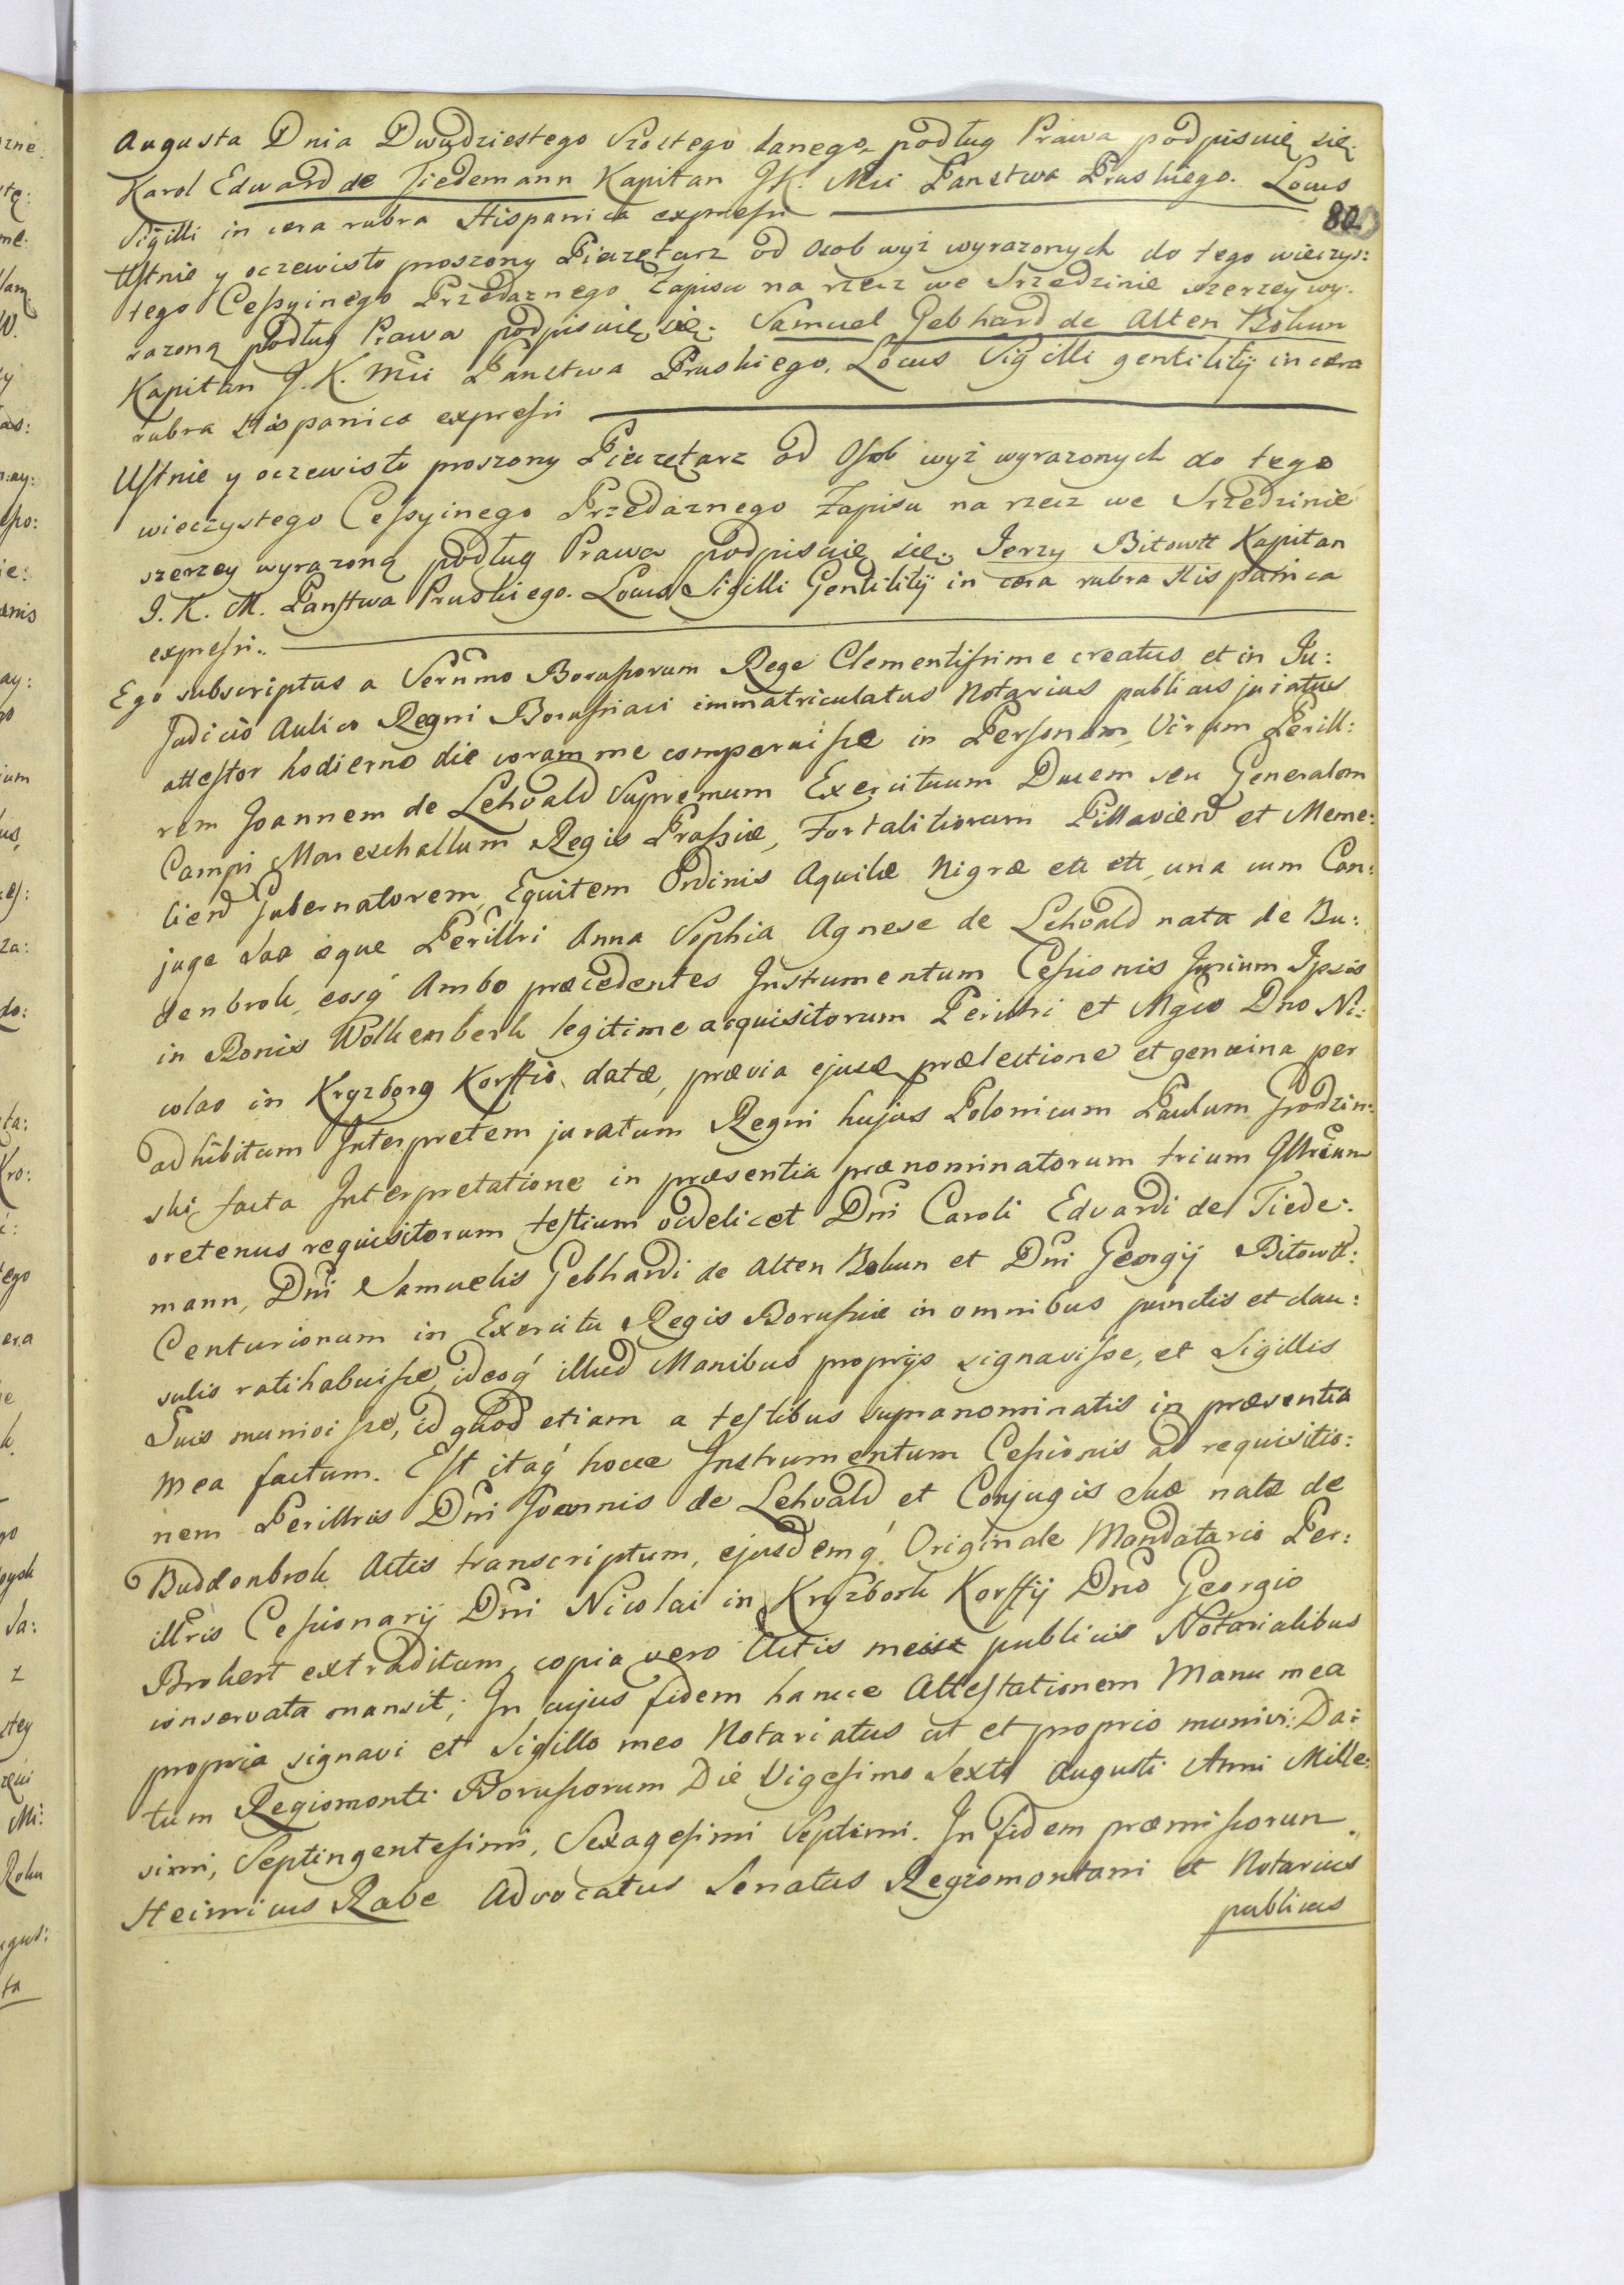 Augusta Dnia Dwudziestego Szostego danego, podług Prawa podpisuię się.
Karol Edward de Tiedemann Kapitan JK. Mci Panstwa Pruskiego. Locus
Sigilli in cera rubra Hispanica expressi
80
Ustnie y oczewisto proszony Pieczętarz od Osob wyż wyrazonych do tego wieczys:
tego Cessyinego Przedaznego Zapisu na rzecz we Srzedzinie szerzey wy.
razoną podług Prawa podpisuię się. Samuel Gebhard de Alten Bokun
Kapitan J. K. Mci Panstwa Pruskiego, Locus Sigilli gentilitij in cera
rubra Hispanica expressi
Ustnie y oczewisto proszony Pieczętarz od Osob wyż wyrazonych do tego
wieczystego Cessyinego Przedaznego Zapisu na rzecz we Srzedzinie
szerzey wyrazoną podług Prawa podpisuię się. Jerzy Bitowtt Kapitan
J. K. M. Panstwa Pruskiego. Locus Sigilli Gentilitij in cera rubra Hispanica
expressi.
Ego subscriptus a Serūmo Borussorum Rege Clementissime creatus et in Ju:
Judicio Aulico Regni Borussiaci immatriculatus Notarius publicus juratus
attestor hodierno die coram me comparuisse in Personam, Virum Perill:
rem Joannem de Lehvald Supremum Exercituum Ducem seu Generalem
Campi Mareschallum Regis Prussiæ, Fortalitiorum Pillavien et Meme:
lien Gubernatorem, Equitem Ordinis Aquilæ Nigræ etc etc, una cum Con:
juge sua eque Perillri Anna Sophia Agnese de Lehvald nata de Bu:
denbrok, eosq́ Ambo præcedentes Instrumentum Cessionis Jurium Ipsis
in Bonis Wolkenberk legitime acquisitorum Perillri et Mgco Dno Ni:
colao in Kryzborg Korffio datæ, prævia ejusæ prælectione et genuina per
adhibitum Interpretem juratum Regni hujus Polonicum Paulum Grodzin:
ski facta Interpretatione in præsentia prænominatorum trium Illrium
oretenus requisitorum testium videlicet Dni Caroli Edvardi de Tiede:
mann, Dni Samuelis Gebhardi de Alten Bokun et Dni Georgij Bitowtt:
Centurionum in Exercitu Regis Borussiæ in omnibus punctis et clau:
sulis ratihabuisse, ideoq́ illud Manibus proprijs signavisse, et Sigillis
Suis munivisse, id quod etiam a testibus supranominatis in præsentia
mea factum. Est itaq́ hocce Instrumentum Cessionis ad requisitio:
nem Perillris Dni Joannis de Lehvald et Conjugis suæ natæ de
Buddenbrok Actis transcriptum, ejusdemq́ Originale Mandatario Per:
illris Cessionarij Dni Nicolai in Kryzbork Korffij Dno Georgio
Brokert extraditum, copia vero Actis meis publicis Notarialibus
conservata mansit; In cujus fidem hancce Attestationem Manu mea
propria signavi et Sigillo meo Notariatus ut et proprio munivi. Da:
tum Regiomonti Borussorum Die Vigesimo Sexto Augusti Anni Mille:
simi, Septingentesimi, Sexagesimi Septimi. In fidem præmissorum.
Heinricus Rabe Advocatus Senatus Regiomontani et Notarius
publicus